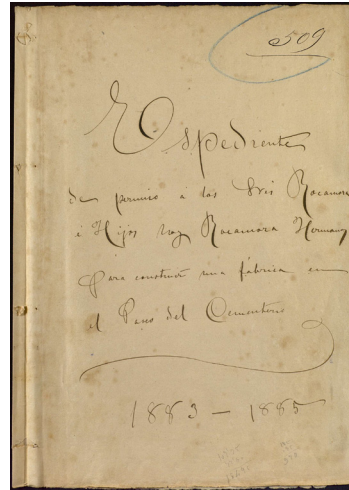 509
Espediente
de permiso a los Sres Rocamora
é Hijos hoy Rocamora Hermanos
Para construir una fábrica en
el Paseo del Cementerio
1883 – 1885